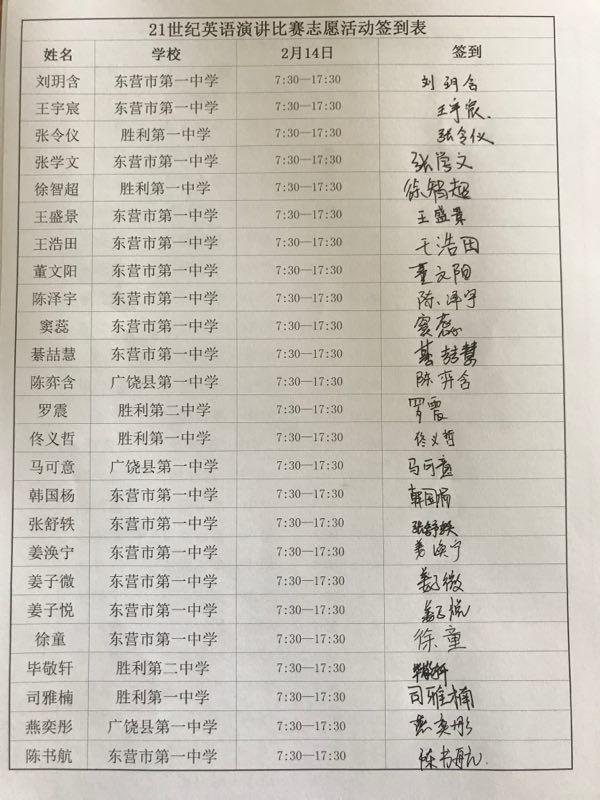 21世纪英语演讲比赛志愿活动签到表
姓名 学校 2月14日 签到
刘玥含 东营市第一中学 7:30—17:30 刘玥含
王宇宸 东营市第一中学 7:30—17:30 王宇宸
张令仪 胜利第一中学 7:30—17:30 张令仪
张学文 东营市第一中学 7:30—17:30 张学文
徐智超 胜利第一中学 7:30—17:30 徐智超
王盛景 东营市第一中学 7:30—17:30 王盛景
王浩田 东营市第一中学 7:30—17:30 王浩田
董文阳 东营市第一中学 7:30—17:30 董文阳
陈泽宇 东营市第一中学 7:30—17:30 陈泽宇
窦蕊 东营市第一中学 7:30—17:30 窦蕊
綦喆慧 东营市第一中学 7:30—17:30 綦喆慧
陈弈含 广饶县第一中学 7:30—17:30 陈弈含
罗震 胜利第二中学 7:30—17:30 罗震
佟义哲 胜利第一中学 7:30—17:30 佟义哲
马可意 广饶县第一中学 7:30—17:30 马可意
韩国杨 东营市第一中学 7:30—17:30 韩国杨
张舒轶 东营市第一中学 7:30—17:30 张舒轶
姜涣宁 东营市第一中学 7:30—17:30 姜涣宁
姜子微 东营市第一中学 7:30—17:30 姜子微
姜子悦 东营市第一中学 7:30—17:30 姜子悦
徐童 东营市第一中学 7:30—17:30 徐童
毕敬轩 胜利第二中学 7:30—17:30 毕敬轩
司雅楠 胜利第一中学 7:30—17:30 司雅楠
燕奕彤 广饶县第一中学 7:30—17:30 燕奕彤
陈书航 东营市第一中学 7:30—17:30 陈书航